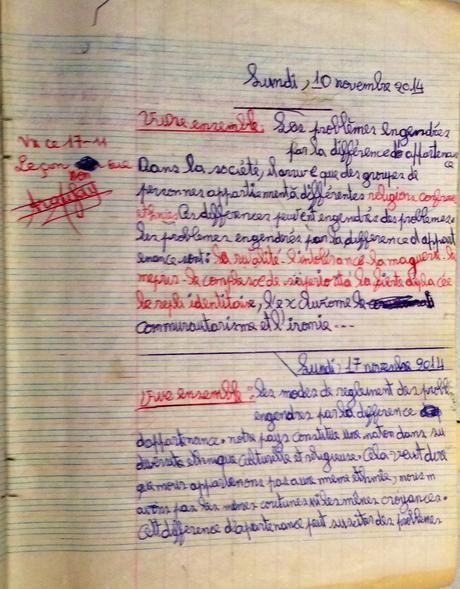 Lundi, 10 novembre 2014
Vivre ensemble: Les problèmes engendrés
par la différence d'appartenance
Vu ce 17-11
Leçon sue
Dans la société, il arrive que des groupes de
personnes appartiennent à différentes religion
Ces différences peuvent engendrés des problèmes
les problèmes engendrés par la différence d'appart
enance sont: la rivalité - l'intolérance la - le
mepris - le complexe de superiorité la fierté déplacée
le repli identitaire, l' le
communautarisme et l'ironie ...
Lundi 17 novembre 2014
Vivre ensemble: les modes de reglement des problè
engendres par la difference
d'appartenance. notre pays constitue une nation dans sa
diversité ethnique culturelle et religieuse. Cela veut dire
que nous appartenons pas a une même ethnie, nous n
avons pas les mêmes coutumes ni les mêmes croyances.
Cette différence d'apartenance peut susciter des problèmes